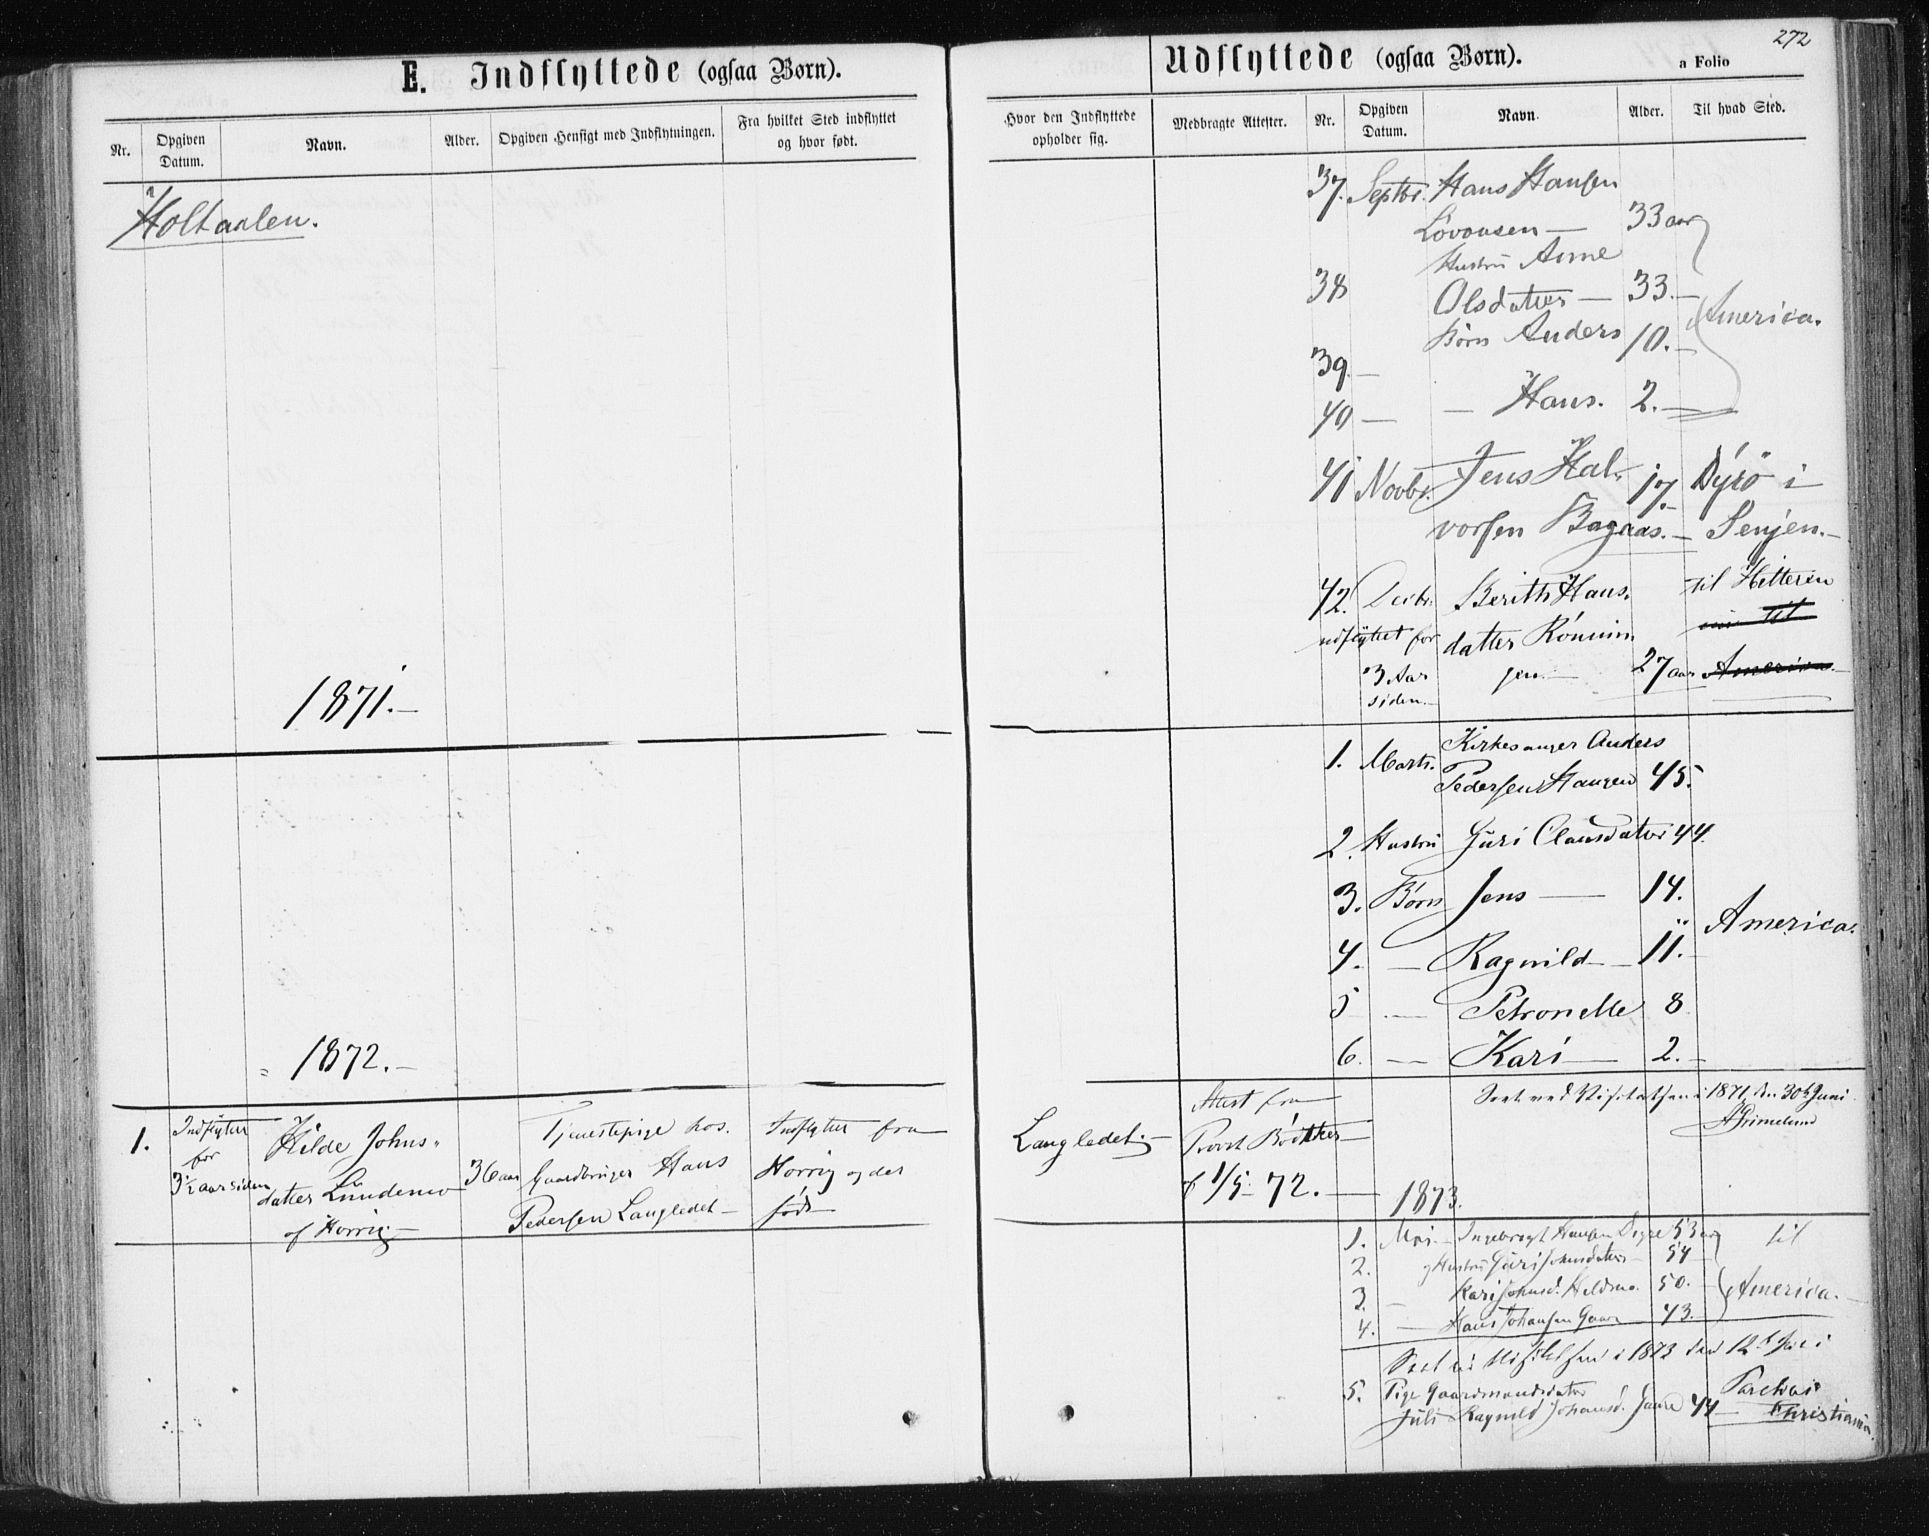 E. Indflyttede (ogsaa Børn).
Nr.
Opgiven Datum.
Navn.
Alder.
Opgiven Hensigt med Indflytningen.
Fra hvilket Sted indflyttet og hvor født.
Holtaalen.
1871.
1872.
1. Indflyttet for 3½ aar siden
Hilde Johns-
datter Lundemo
af Horrig
36 aar
Tjenestepige hos
Gaardbruger Hans
Pedersen Langledet
Indflyttet fra
Horrig og der
født
272
Udflyttede (ogsaa Børn).
a Folio
Hvor den Indflyttede opholder sig.
Medbragte Attester.
Nr.
Opgiven Datum.
Navn.
Alder.
Til hvad Sted.
37. Septbr. Hans Hansen
Lövousen — 33 aar
Hustru Anne
38 Olsdatter — 33.—
Børn Anders 10.—
America.
39.—
40 — — Hans. 2.—
41 Novbr. Jens Hal-
vorsen Bagaas. 17.— Dyrö i
Senjen.—
42. Decbr. Berith Hans- til Hitteren
udflyttet for datter Rönnin til
3 Aar gen. — 27 aar America
siden.—
1. Marts. Kirkesanger Anders
Pedersen Haugen 45.
2. Hustru Guri Clausdatter 44.
3. Børn Jens — 14.
America.
4. — Ragnild — 11.—
5 — Petronelle 8
6. — Kari — 2.—
Seet ved Visitatsen i 1871 den 30te Juni
AGrimelund
Langledet.—
Attest fra
Provst Bödtker
af 1/5 72.—
1873.
1. Mai — Ingebrigt Hansen Digre 53 aar til
2. og Hustru Guri Johnsdatter — 54
3. — Kari Johnsd. Heldmo. 50.— America.—
4. — Hans Johansen Gaare 43.—
Seet ved Visitatsen i 1873 den 12te Juli
5. Pige Gaardmandsdatter
Juli Ragnild Johansd. Gaare 44 — Christiania.